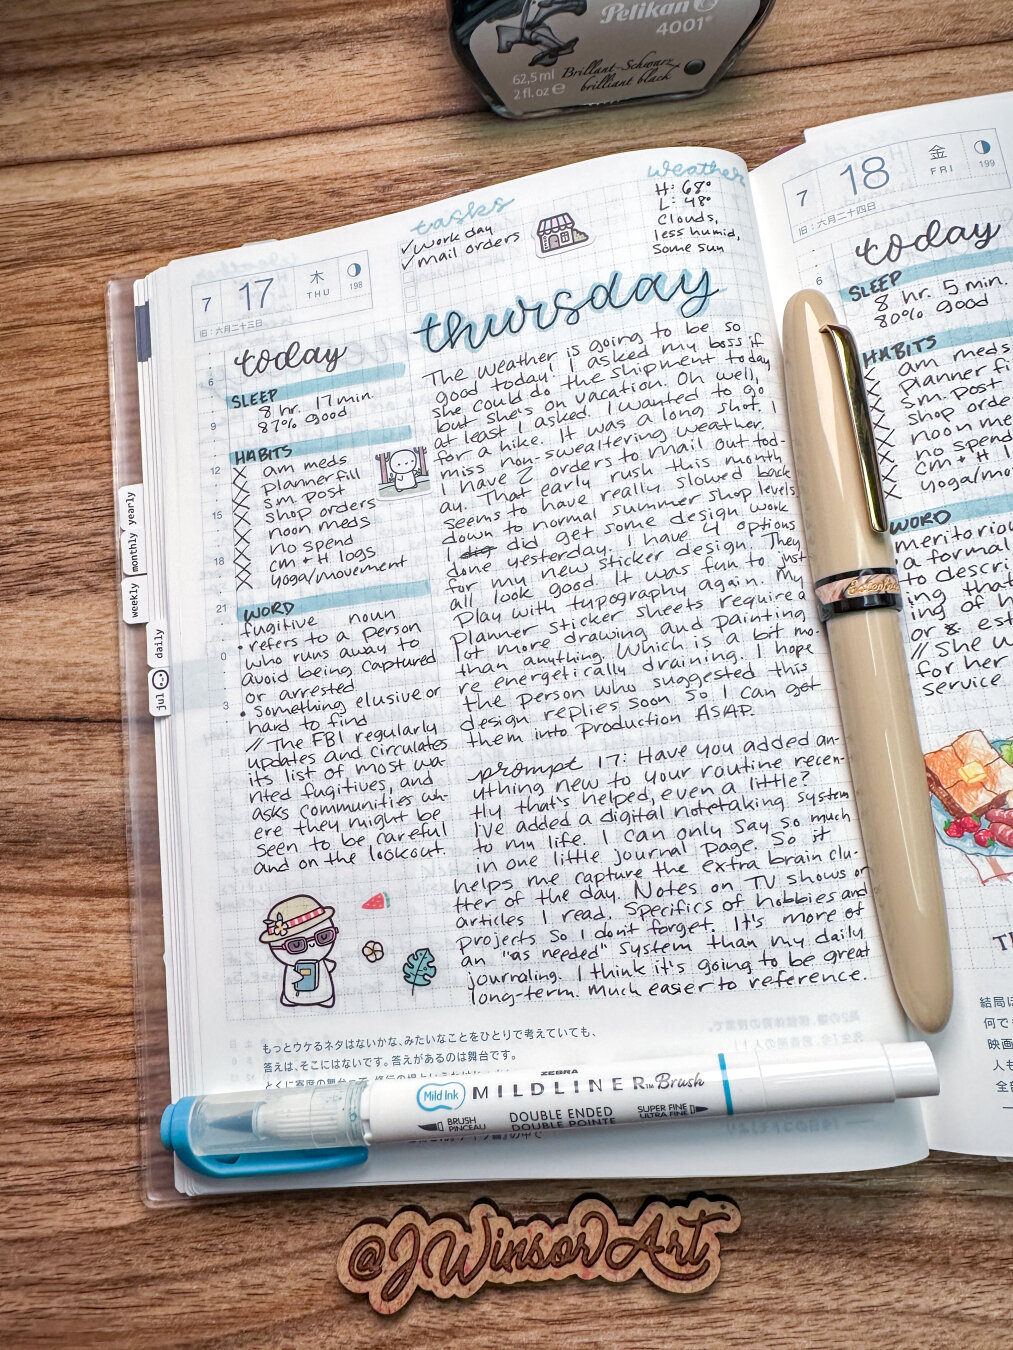 Pelikan
4001®
62,5 ml Brillant-Schwarz
2 fl. oz e brilliant black
7 17 木 THU 198
旧:六月二十三日
tasks
✓ work day
✓ mail orders
weather
H: 68°
L: 48°
Clouds,
less humid,
some sun
today
SLEEP
8 hr. 17 min.
87% good
HABITS
am meds
planner fill
s.m. post
shop orders
noon meds
no spend
cm + H logs
yoga/movement
WORD
fugitive noun
• refers to a person
who runs away to
avoid being captured
or arrested
• something elusive or
hard to find
// The FBI regularly
updates and circulates
its list of most wa-
nted fugitives, and
asks communities wh-
ere they might be
seen to be careful
and on the lookout.
6
9
12
15
18
21
0
3
thursday
The weather is going to be so
good today! I asked my boss if
she could do the shipment today
but she's on vacation. Oh well,
at least I asked. I wanted to go
for a hike. It was a long shot. I
miss non-swealtering weather.
I have 2 orders to mail out tod-
ay. That early rush this month
seems to have really slowed back
down to normal summer shop levels
I dig did get some design work
done yesterday. I have 4 options
for my new sticker design. They
all look good. It was fun to just
play with typography again. My
planner sticker sheets require a
lot more drawing and painting
than anything. Which is a bit mo-
re energetically draining. I hope
the person who suggested this
design replies soon so I can get
them into production ASAP.
prompt 17: Have you added an-
ything new to your routine recen-
tly that's helped, even a little?
I've added a digital notetaking system
to my life. I can only say so much
in one little journal page. So it
helps me capture the extra brain clu-
tter of the day. Notes on TV shows or
articles I read. Specifics of hobbies and
projects so I don't forget. It's more of
an "as needed" system than my daily
journaling. I think it's going to be great
long-term. Much easier to reference.
もっとウケるネタはないかな、みたいなことをひとりで考えていても、
答えは、そこにはないです。答えがあるのは舞台です。
yearly
monthly
weekly
daily
jul
7 18 金 FRI 199
旧:六月二十四日
today
6
SLEEP
8 hr. 5 min.
80% good
HABITS
am meds
planner fi
s.m. post
shop orde
noon me
no spend
cm + H l
yoga/mo
WORD
meritoriou
• a formal
to descri
ing that
ing of h
or & est
// She w
for her
service
結局は
何でも
映画
人も
全部
ZEBRA
Mild Ink MILDLINER™ Brush
BRUSH
PINCEAU
DOUBLE ENDED
DOUBLE POINTE
SUPER FINE
ULTRA FINE
@JWinsorArt